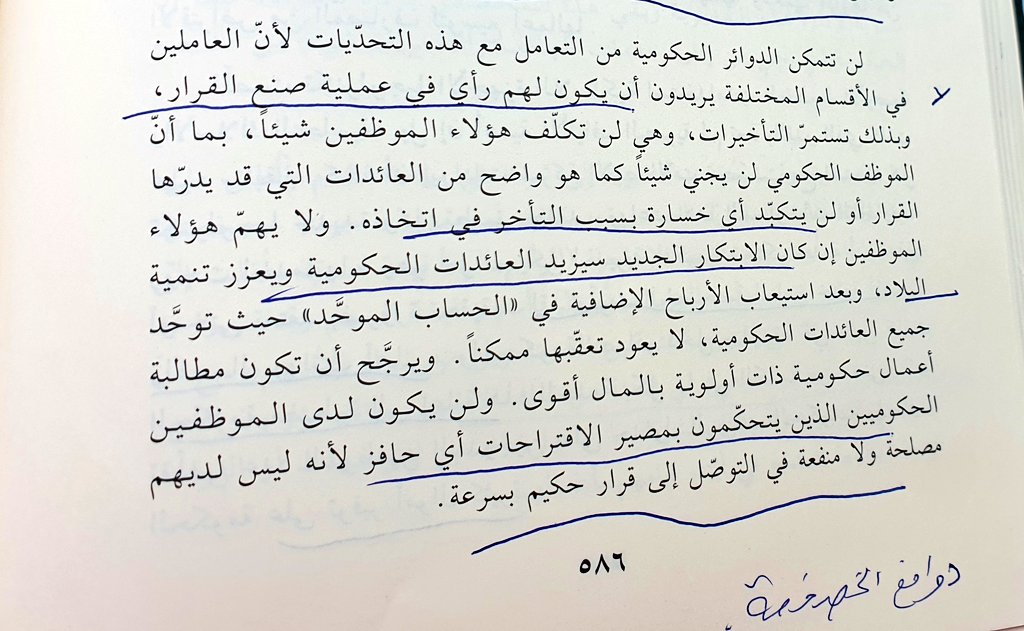 لن تتمكن الدوائر الحكومية من التعامل مع هذه التحدّيات لأنّ العاملين
في الأقسام المختلفة يريدون أن يكون لهم رأي في عملية صنع القرار،
وبذلك تستمرّ التأخيرات، وهي لن تكلّف هؤلاء الموظفين شيئاً، بما أنّ
الموظف الحكومي لن يجني شيئاً كما هو واضح من العائدات التي قد يدرّها
القرار أو لن يتكبّد أي خسارة بسبب التأخر في اتخاذه. ولا يهمّ هؤلاء
الموظفين إن كان الابتكار الجديد سيزيد العائدات الحكومية ويعزز تنمية
البلاد، وبعد استيعاب الأرباح الإضافية في «الحساب الموحَّد» حيث توحَّد
جميع العائدات الحكومية، لا يعود تعقّبها ممكناً. ويرجَّح أن تكون مطالبة
أعمال حكومية ذات أولوية بالمال أقوى. ولن يكون لدى الموظفين
الحكوميين الذين يتحكّمون بمصير الاقتراحات أي حافز لأنه ليس لديهم
مصلحة ولا منفعة في التوصّل إلى قرار حكيم بسرعة.
٥٨٦